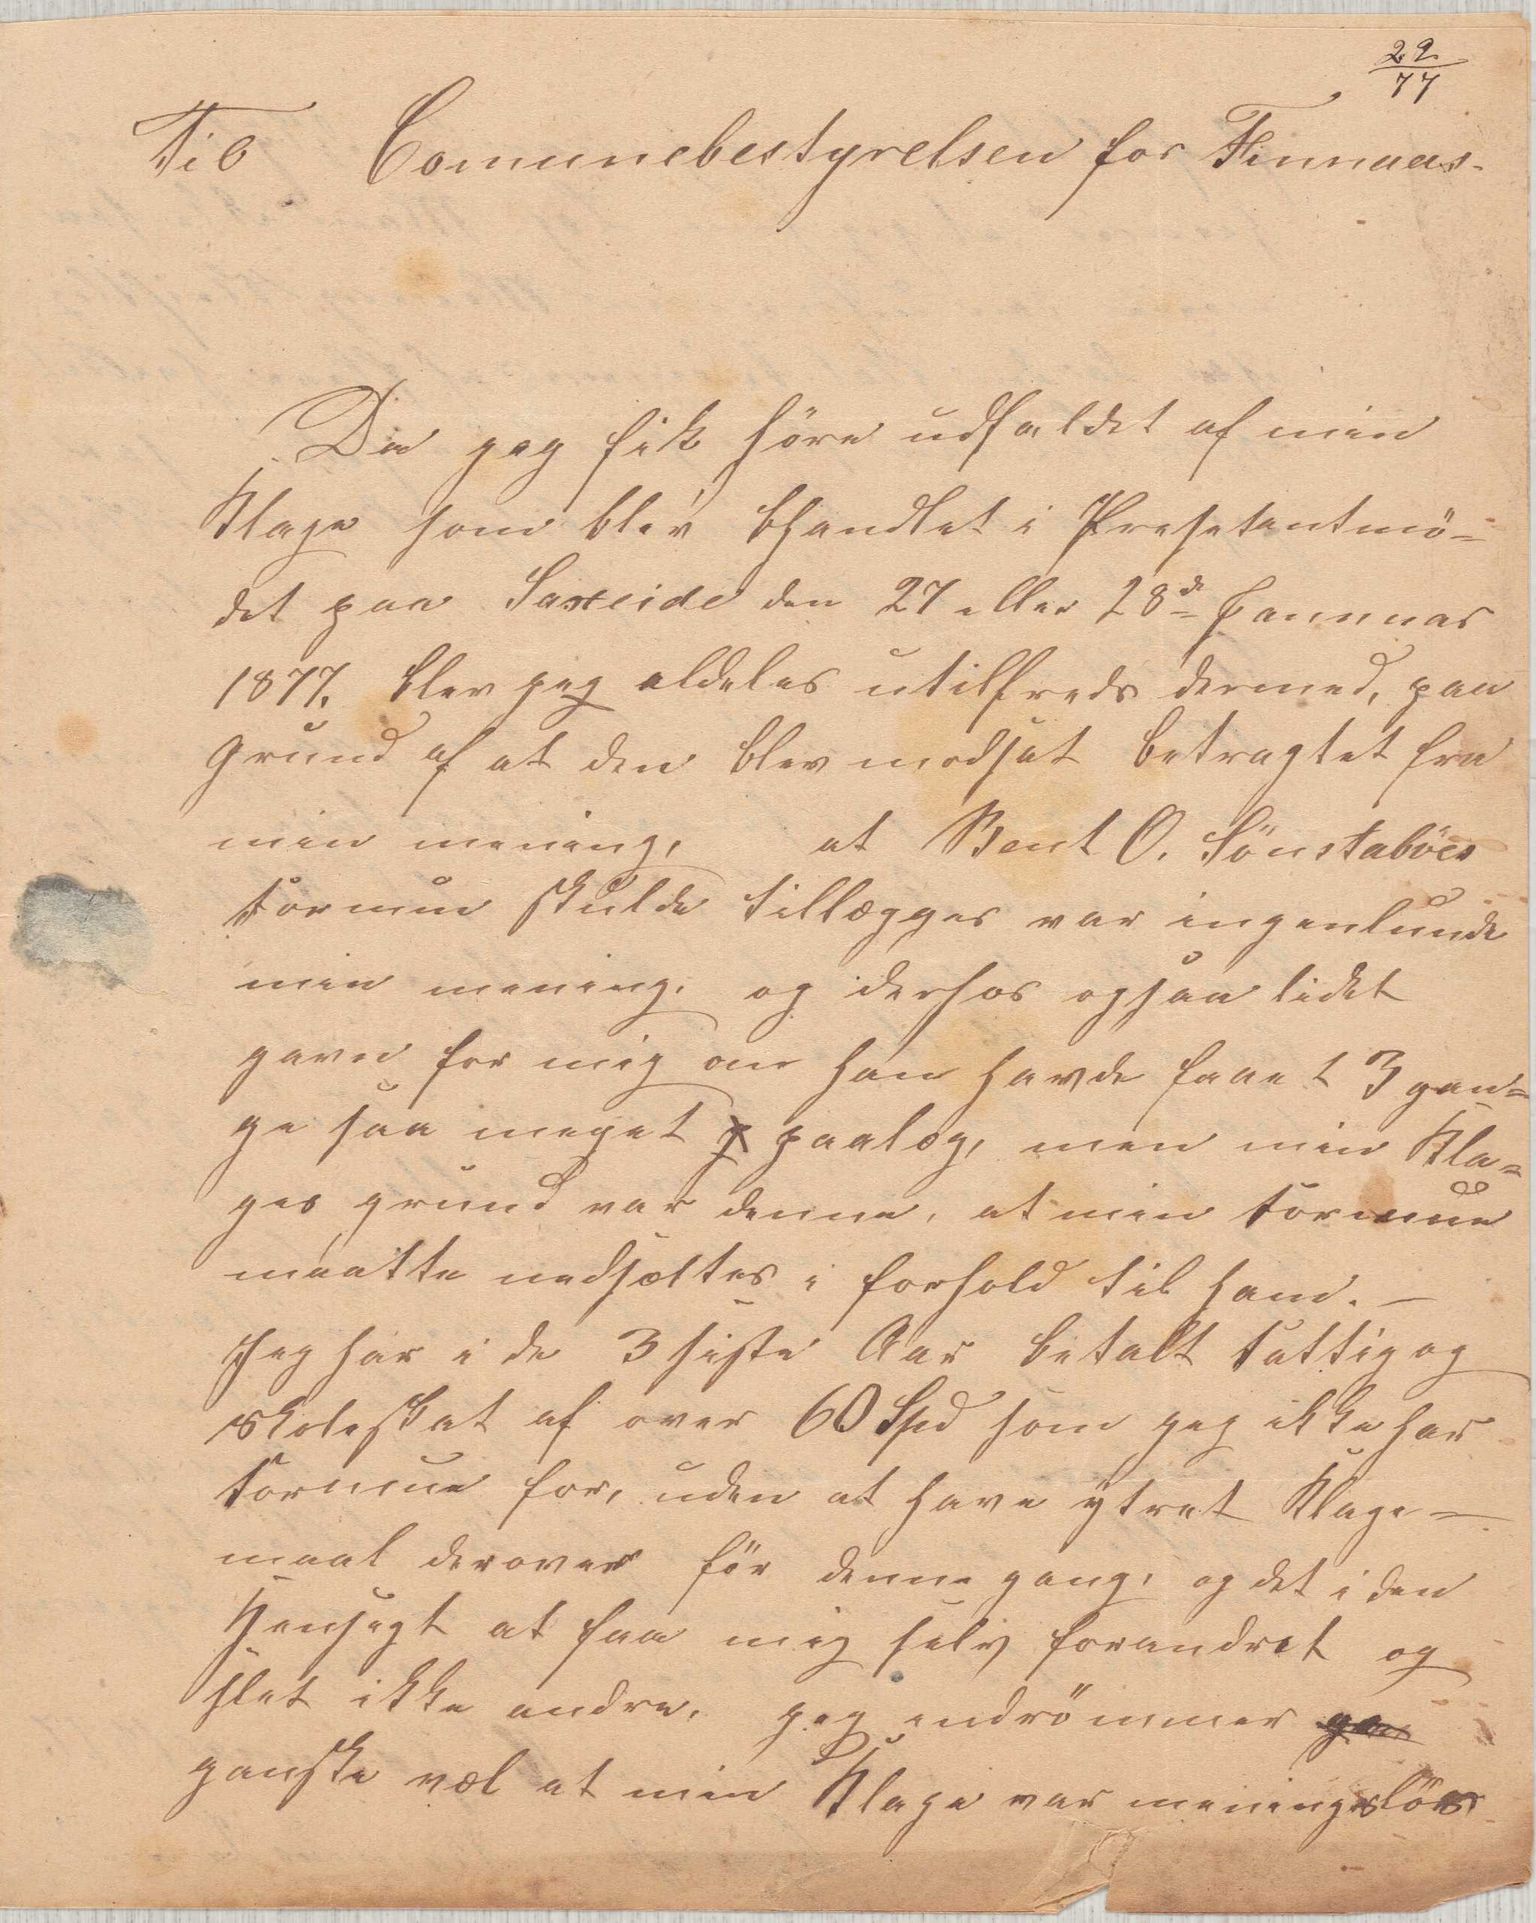 29
77
Til Comunebestyrelsen for Finnaas.
Da jeg fik höre udfaldet af min
Klage som blev bhandlet i Presetentmö-
det paa Sareide den 27 eller 28de Januuar
1877. blev jeg aldeles utilfreds dermed, paa
grund af at den blev modsat betragtet fra
min mening, at Bent O. Sönstabö
Formue skulde tillægges var ingenlunde
min mening, og derhos ogsaa lidet
gavn for mig om han havde faaet 3 gan-
ge saa meget paalæg, men min Kla-
ges grund var denne, at min Formue
maatte nedsættes i forhold til ham. —
Jeg har i de 3 siste Aar betalt Fattig og
Skoleskat af over 60 Spd som jeg ikke har
Formue for, uden at have ytret Klage-
maal derover för denne gang, og det i den
Hensigt at faa mig selv forandret og
slet ikke andre, jeg indrömmer
ganske vel at min Klage var meningslös